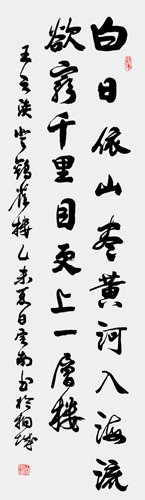 白日依山尽黄河入海流
欲穷千里目更上一层楼
王之涣登鹳雀楼乙未夏日云南书於